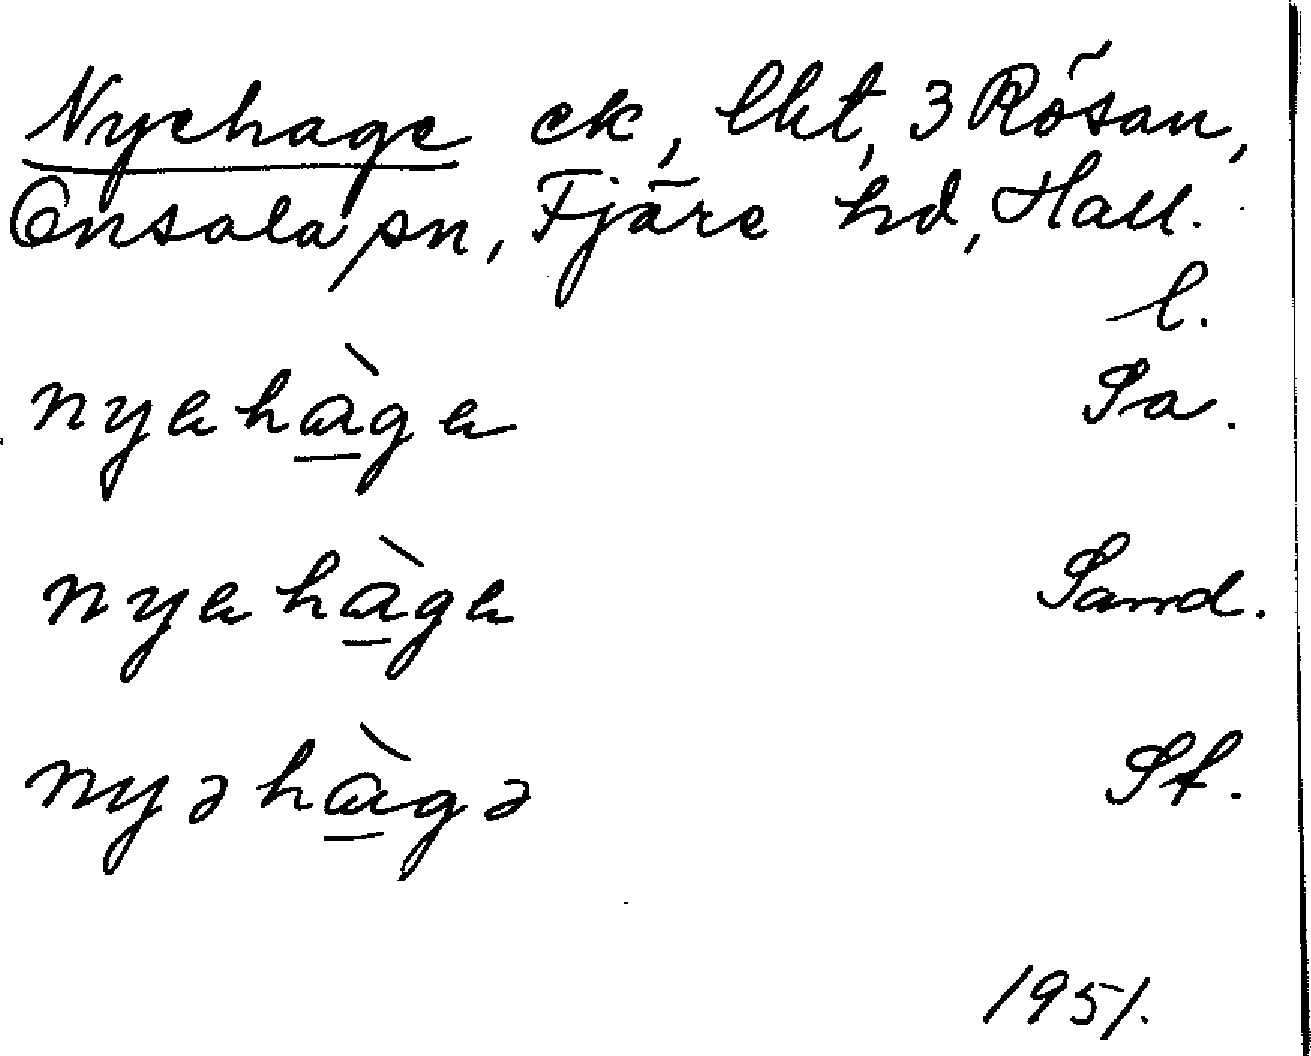 Nyehage ck, lkt, 3 Rösan,
Onsala sn, Fjäre hd, Hall.
l.
nyehàge Sa.
nyehàge Sand.
nyəhàgə St.
1951.